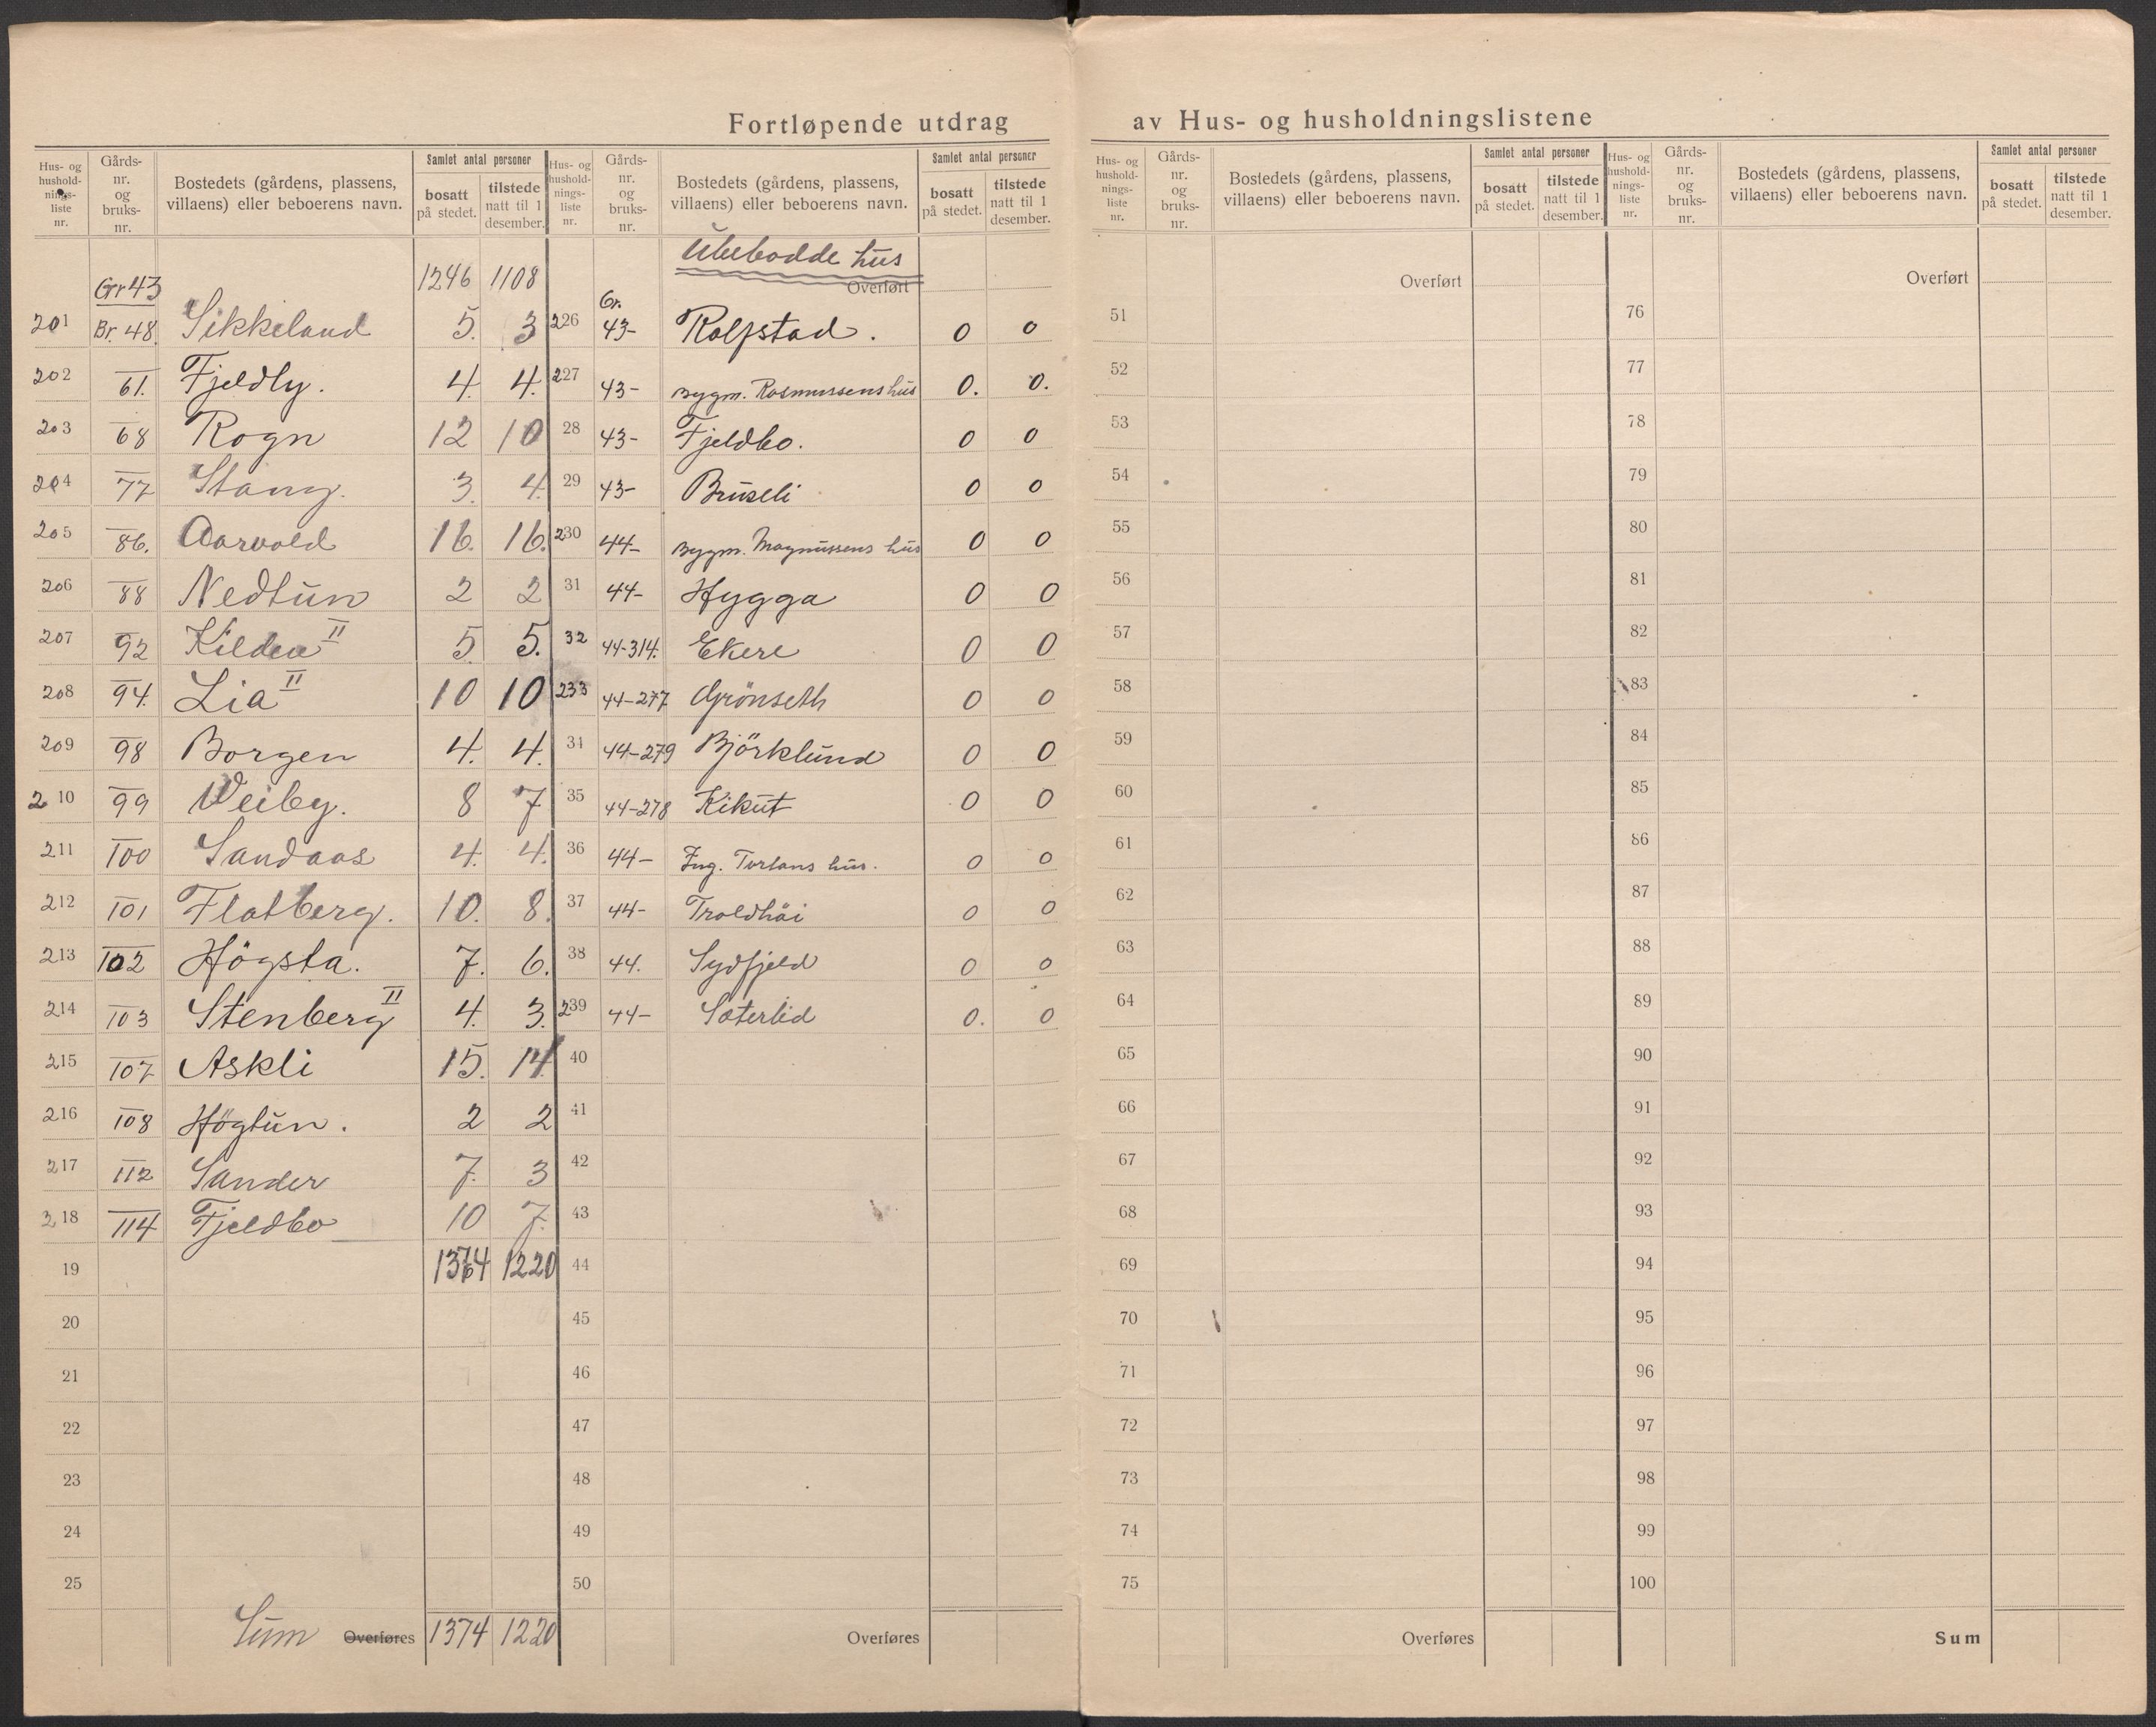 Fortløpende utdrag av Hus- og husholdningslistene
Hus- og hushold- nings- liste nr. | Gårds- nr. og bruks- nr. | Bostedets (gårdens, plassens, villaens) eller beboerens navn. | Samlet antal personer | bosatt på stedet. | tilstede natt til 1 desember.
Gr 43 1246 1108
201 Br. 48. Sikkeland 5. 3
202 61. Fjeldly. 4. 4.
203 68 Rogn 12 10
204 77 Stang. 3. 4.
205 86. Aarvold 16. 16.
206 88 Nedtun 2 2
207 92 Kildea II 5. 5.
208 94. Lia II 10 10
209 98 Borgen 4. 4.
210 99 Veiby. 8 7
211 100 Sandaas 4. 4.
212 101 Flatberg. 10. 8.
213 102 Högsta. 7. 6.
214 103 Stenberg II 4. 3.
215 107 Askli 15. 14.
216 108 Högtun. 2 2
217 112 Sander 7. 3
218 114 Fjeldbo 10 7.
19 1374 1220
20
21
22
23
24
25
Sum Overføres 1374 1220
Hus- og hushold- nings- liste nr. | Gårds- nr. og bruks- nr. | Bostedets (gårdens, plassens, villaens) eller beboerens navn. | Samlet antal personer | bosatt på stedet. | tilstede natt til 1 desember.
Ubebodde hus
Overført
226 Gr. 43- Rolfstad. 0 0
227 43- Bygm. Rasmussens hus 0. 0.
28 43- Fjeldbo. 0 0
29 43- Bruseli 0 0
230 44- Bygm. Magnussens hus 0 0
31 44- Hygga 0 0
32 44-314. Ekere 0 0
233 44-277 Grönseth 0 0
34 44-279 Björklund 0 0
35 44-278 Kikut 0 0
36 44- Ing. hus. 0 0
37 44- Troldhöi 0 0
38 44. Sydfjeld 0 0
239 44- Sæterlid 0. 0
40
41
42
43
44
45
46
47
48
49
50
Overføres
Hus- og hushold- nings- liste nr. | Gårds- nr. og bruks- nr. | Bostedets (gårdens, plassens, villaens) eller beboerens navn. | Samlet antal personer | bosatt på stedet. | tilstede natt til 1 desember.
Overført
51
52
53
54
55
56
57
58
59
60
61
62
63
64
65
66
67
68
69
70
71
72
73
74
75
Overføres
Hus- og hushold- nings- liste nr. | Gårds- nr. og bruks- nr. | Bostedets (gårdens, plassens, villaens) eller beboerens navn. | Samlet antal personer | bosatt på stedet. | tilstede natt til 1 desember.
Overført
76
77
78
79
80
81
82
83
84
85
86
87
88
89
90
91
92
93
94
95
96
97
98
99
100
Sum